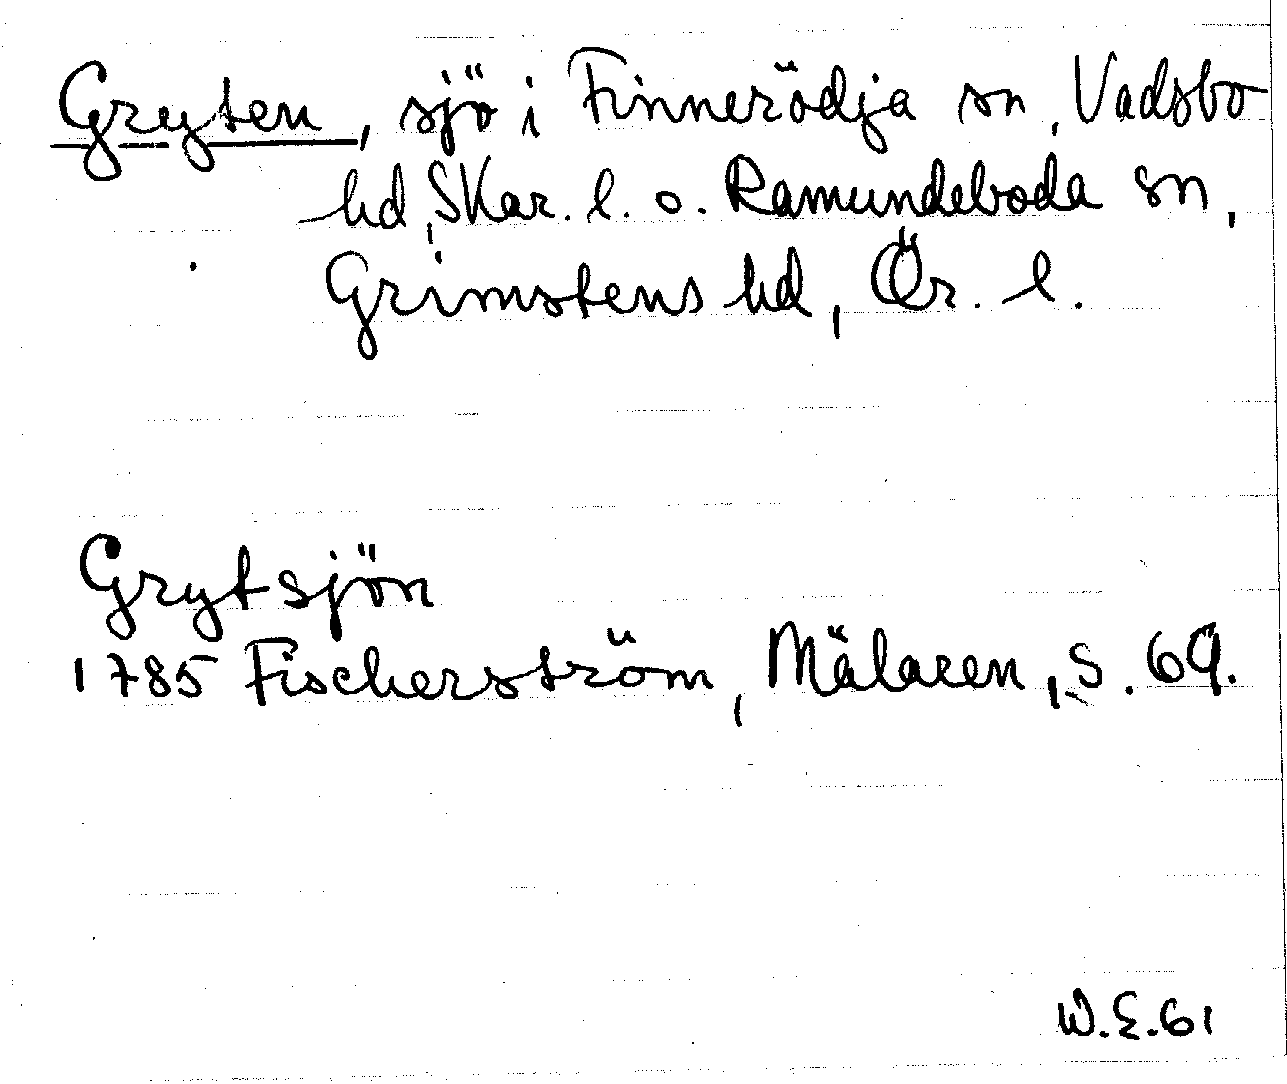 Gryten, sjö i Finnerödja sn, Vadsbo
hd, Skar. l. o. Ramundeboda sn,
Grimstens hd, Ör. l.
Grytsjön
1785 Fischerström, Mälaren, S. 69.
W.E.61